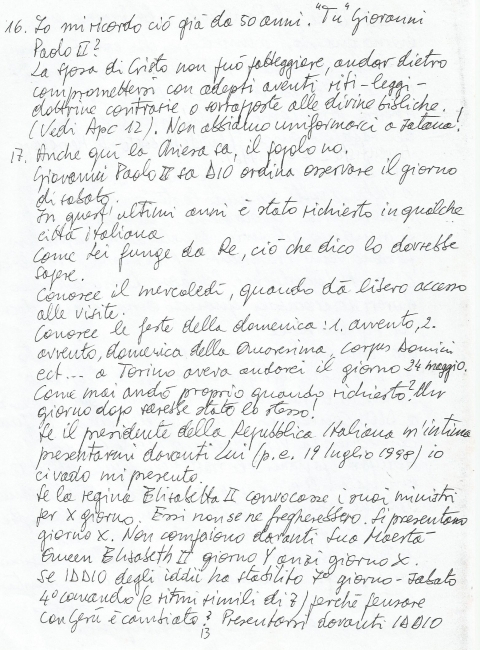 16. Io mi ricordo ciò già da 50 anni. "Tu" Giovanni
Paolo II?
La sposa di Cristo non può patteggiare, andar dietro
compromettersi con adepti aventi riti - leggi -
dottrine contrarie o sottoposte alle divine bibliche.
(Vedi Apc 12). Non abbiamo uniformarci a satana!
17. Anche qui la Chiesa sa, il popolo no.
Giovanni Paolo II sa DIO ordina osservare il giorno
di sabato.
In questi ultimi anni è stato richiesto in qualche
città italiana
Come Lei funge da Re, ciò che dico lo dovrebbe
sapere.
Conosce il mercoledì, quando dà libero accesso
alle visite.
Conosce le feste della domenica: 1. avvento, 2.
avvento, domenica della Quaresima, Corpus Domini
ect... a Torino aveva andarci il giorno 24 maggio.
Come mai andò proprio quando richiesto? Un
giorno dopo sarebbe stato lo stesso!
Se il presidente della Repubblica Italiana m'intima
presentarmi davanti Lui (p.e. 19 luglio 1998) io
ci vado mi presento.
Se la regina Elisabetta II convocasse i suoi ministri
per X giorno. Essi non se ne fregherebbero. Si presentano
giorno X. Non compaiono davanti Sua Maestà
Queen Elisabeth II giorno Y anzi giorno X.
Se IDDIO degli iddii ha stabilito 7° giorno - sabato
4° comando (e ritmi simili di 7) perché pensare
con Gesù è cambiato? Presentarsi davanti IDDIO
13